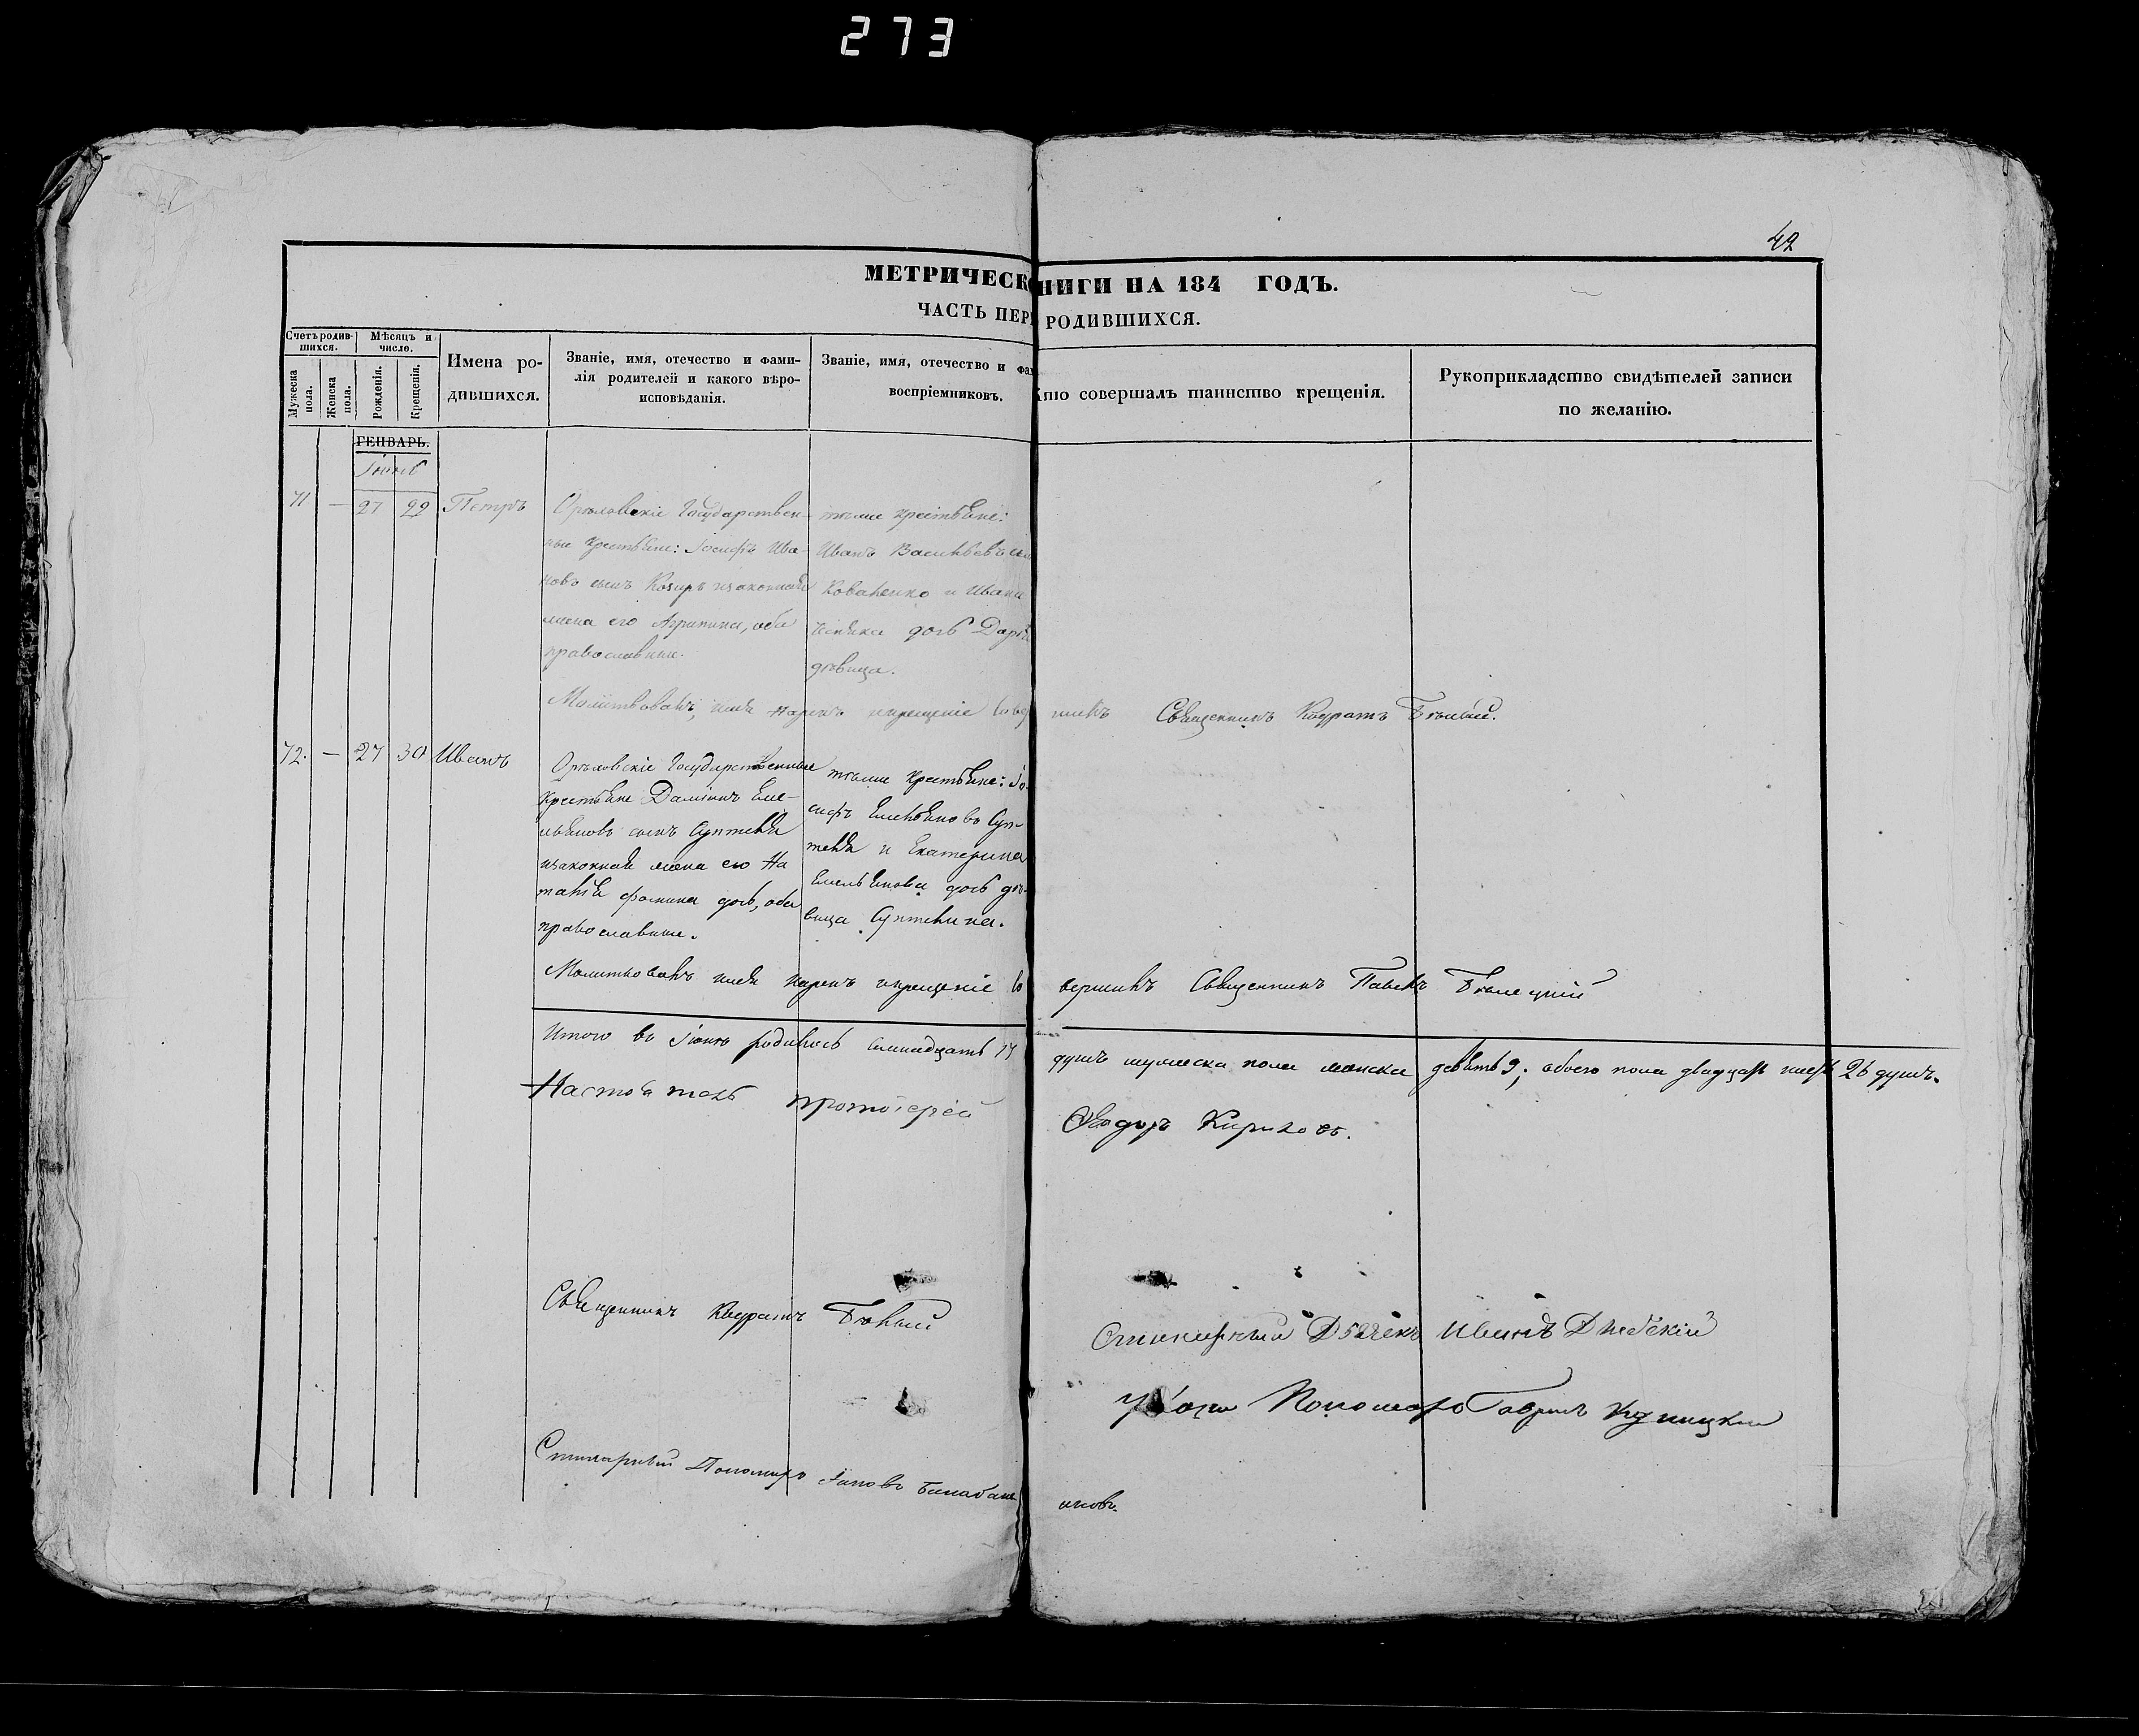 273
42
МЕТРИЧЕСКО НИГИ НА 184 ГОДЪ.
ЧАСТЬ ПЕР РОДИВШИХСЯ.
Счетъ родив-шихся.
Мѣсяцъ и число.
Мужеска пола.
Женска пола.
Рожденія.
Крещенія.
Имена ро-дившихся.
Званіе, имя, отечество и фами-
лія родителей и какого вѣро-
исповѣданія.
Званіе, имя, отечество и фам
воспріемниковъ.
Кто совершалъ таинство крещенія.
Рукоприкладство свидѣтелей записи
по желанію.
ГЕНВАРЬ.
Іюнь
71 — 27 29 Петръ
Орѣловскіе Государствен-
ные крестьяне: Іосифъ Ива-
новъ сынъ Козырь изаконная
жена его Агрипина, оба
православные.
тѣже крестьяне:
Иванъ Васильевъ сын
Коваленко и Ивана
дочь Дарія
дѣвица.
Молитвовалъ, имя нарекъ икрещеніе совер шилъ Священникъ Кодратъ Бѣлый.
72. — 27 30 Иванъ
Орѣловскіе Государственные
крестьяне Даміанъ Еме-
льяновъ сынъ Суптеля
изаконная жена его На
талія Фомина дочь, оба
православные.
тѣже крестьяне: Іо-
сифъ Емельяновъ Суп-
теля и Екатерина
Емельянова дочь дѣ-
вица Суптелина.
Молитвовалъ имя нарекъ икрещеніе со вершилъ Священникъ Павелъ Бѣлецкій
Итого въ Іюнѣ родилось семнадцать 17 душъ мужеска пола женска девять 9; обоего пола двадцать шесть 26 душъ.
Настоятель протоіерей Ѳеодоръ Кириловъ.
Священникъ Кодратъ Бѣлый
Стихарный Дьячекъ Иванъ
Пономарь Гаврилъ
Стихарный Пономарь Іаковъ Балабан
ановъ.